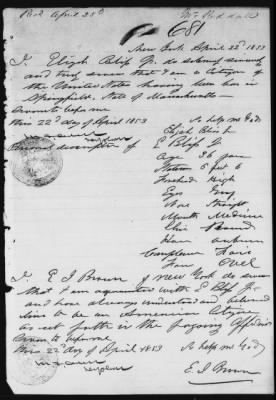 Recd April 23d Mr. Riddall
681
New York April 22d 1853
I, Elijah Bliss Jr. do solemnly sincerely
and truly swear that I am a Citizen of
the United States having been born in
Springfield State of Massachusetts
Sworn to before me
this 22d day of April 1853 So help me God
Elijah Bliss Jr
Personal description of E Bliss Jr
Age 36 years
Stature 5 feet 6
Forehead High
Eyes Gray
Nose Straight
Mouth Medium
Chin Round
Hair Auburn
Complexion Fair
Face Oval
I, E J Brown of New York do swear
that I am acquainted with E Bliss Jr
and have always understood and believed
him to be an American Citizen
as set forth in the foregoing Affidavit
Sworn to before me
this 22d day of April 1853 So help me God
E. J. Brown